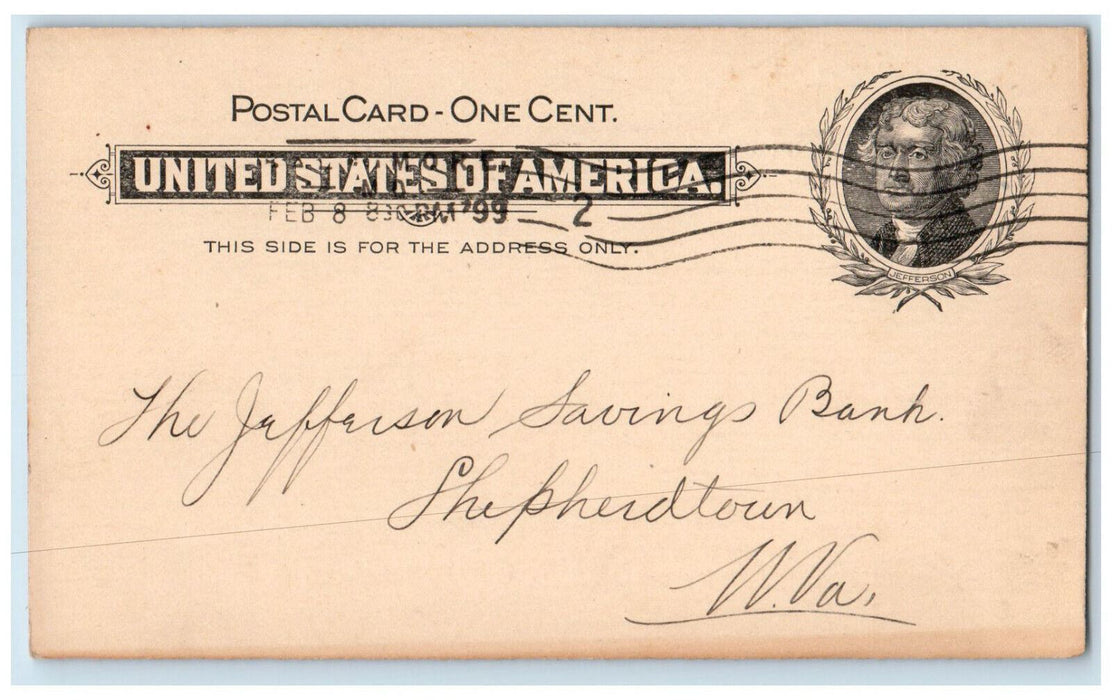 POSTAL CARD - ONE CENT.
UNITED STATES OF AMERICA.
FEB 8 830 PM '99 2
THIS SIDE IS FOR THE ADDRESS ONLY.
JEFFERSON
The Jefferson Savings Bank.
Shepherdtown
W. Va.